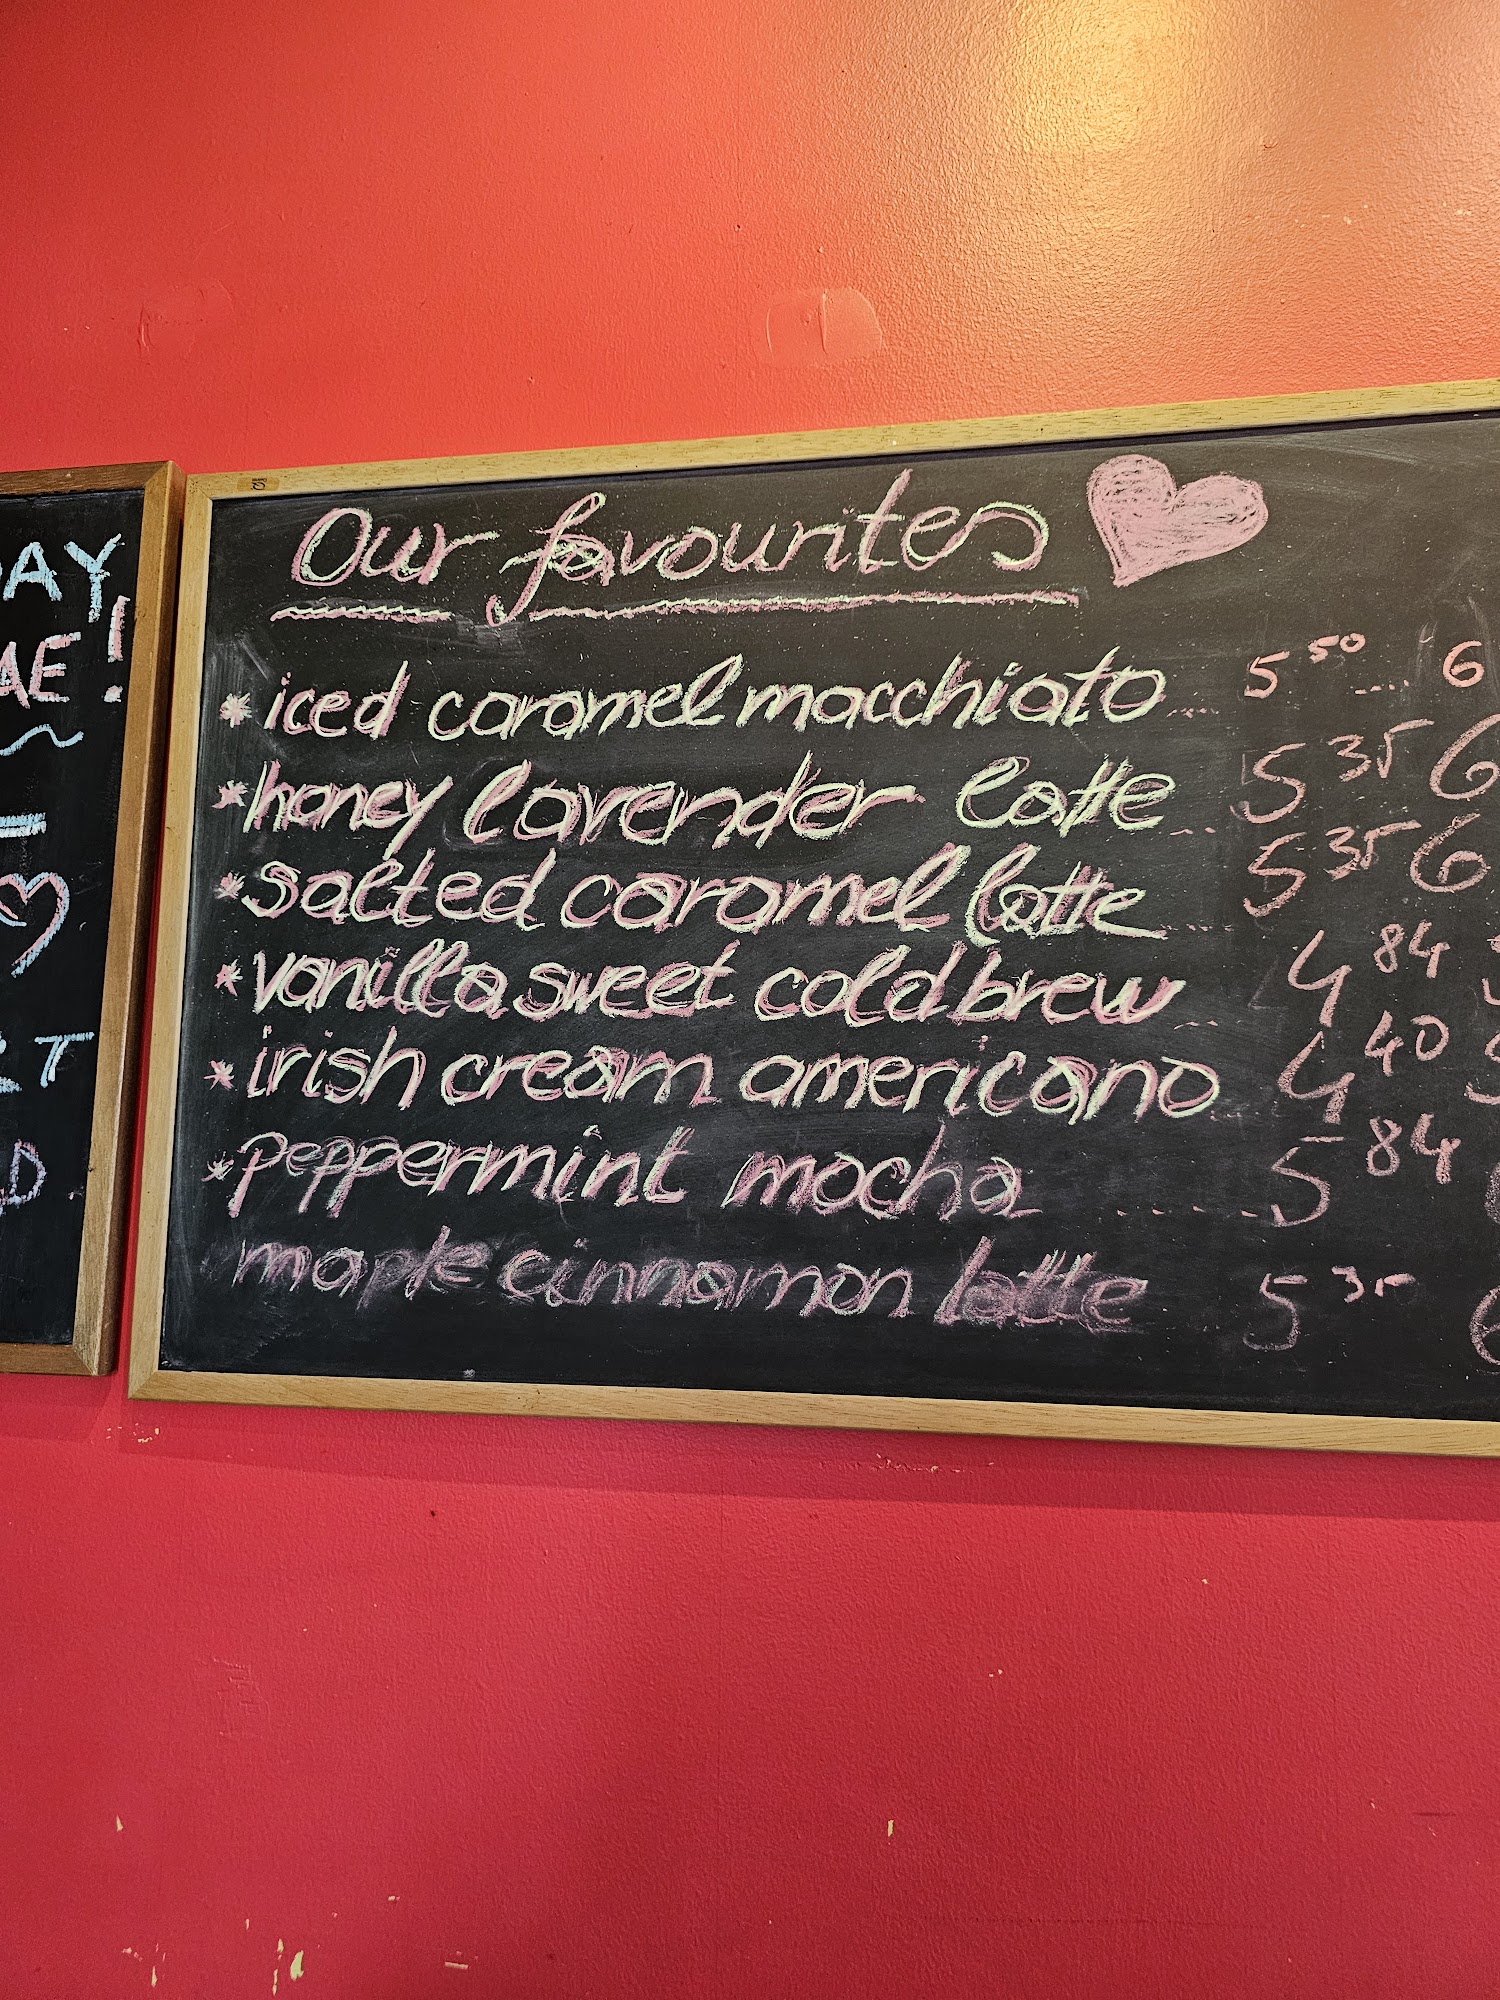 AY
AE!
T
D
Our favourites
* iced caramel macchiato ... 5 50 .... 6
* honey lavender latte ... 5 35 6
* salted caramel latte .... 5 35 6
* vanilla sweet cold brew ... 4 84
* irish cream americano ... 4 40
* peppermint mocha ...... 5 84
maple cinnamon latte 5 35 6